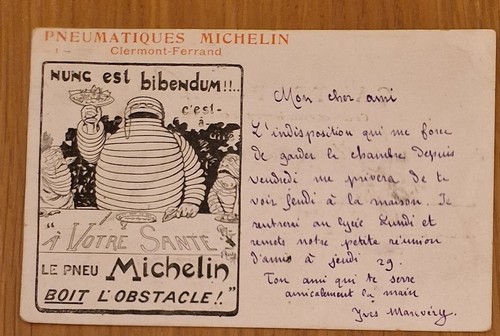 PNEUMATIQUES MICHELIN
— 1 —
Clermont-Ferrand
NUNC est bibendum!!..
c'est-
à-
"À VOTRE SANTÉ
LE PNEU Michelin
BOIT L'OBSTACLE!"
Mon cher ami
L'indisposition qui me force
de garder la chambre depuis
vendredi me privera de te
voir jeudi à la maison. Je
rentrerai au lycée lundi et
remets notre petite réunion
d'amis à jeudi 29.
Ton ami qui te serre
amicalement la main
Yves